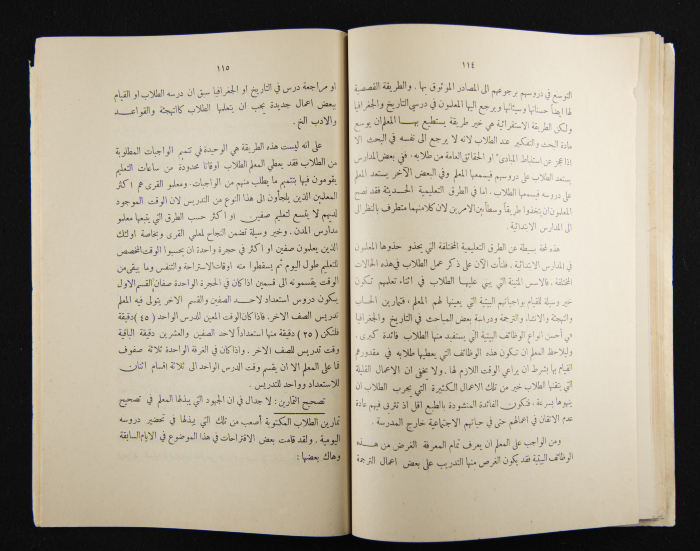 ١١٤
التوسع في دروسهم برجوعهم الى المصادر الموثوق بها . والطريقة القصصية
لها ايضاً حسناتها وسيئاتها ويرجع اليها المعلمون في درسي التاريخ والجغرافيا
ولكن الطريقة الاستقرائية هي خير طريقة يستطيع بهـا المعلم ان يوسع
مادة البحث والتفكير عند الطلاب لانه لا يرجع الى نفسه في البحث الا
اذا عجز عن استنباط المبادىء او الحقائق العامة من طلابه . ففي بعض المدارس
يستعد الطلاب على دروسهم فيسمعها المعلم وفي البعض الآخر يستعد المعلم
على دروسه فيسمعها الطلاب . اما في الطرق التعليمية الحديثة فقد نصح
المعلمون ان يتخذوا طريقاً وسطاً بين الامرين لان كلامنهما متطرف بالنظر الى
المدارس الابتدائية .
هذه لمحة بسيطة عن الطرق التعليمية المختلفة التي يحذو حذوها المعلمون
في المدارس الابتدائية . فلنأت الآن على ذكر عمل الطلاب في هذه الحالات
المختلفة . فالاسس المتينة التي يبني عليها الطلاب في اثناء تعليمهم تكون
خير وسيلة للقيام بواجباتهم البيتية التي يعينها لهم المعلم . فتمارين الحساب
والتهجئة والانشاء والترجمة ودراسة بعض المباحث في التاريخ والجغرافيا
هي أحسن انواع الوظائف البيتية التي يستفيد منها الطلاب فائدة كبرى .
وليلاحظ المعلم ان تكون هذه الوظائف التي يعطيها طلابه في مقدورهم
القيام بها بشرط ان يراعي الوقت اللازم لها . ولا يخفى ان الاعمال القليلة
التي يتقنها الطلاب خير من تلك الاعمال الكثيرة التي يجرب الطلاب ان
ينهوها بسرعة . فتكون الفائدة المنشودة بالطبع اقل اذ تتربى فيهم عادة
عدم الاتقان في اعمالهم حتى في حياتهم الاجتماعية خارج المدرسة .
ومن الواجب على المعلم ان يعرف تمام المعرفة الغرض من هـذه
الوظائف البيتية فقد يكون الغرض منها التدريب على بعض اعمال الترجمة
١١٥
او مراجعة درس في التاريخ او الجغرافيا سبق ان درسه الطلاب او القيام
ببعض اعمال جديدة يجب ان يتعلمها الطلاب كالتهجئة والقواعـد
والادب الخ .
على انه ليست هذه الطريقة هي الوحيدة في تتميم الواجبات المطلوبة
من الطلاب فقد يعطي المعلم الطلاب اوقاتا محدودة من ساعات التعليم
يقومون فيها بتتميم ما يطلب منهم من الواجبات . ومعلمو القرى هم اكثر
المعلمين الذين يلجأون الى هذا النوع من التدريس لان الوقت الموجود
لديهم لا يتسع لتعليم صفين او اكثر حسب الطرق التي يتبعها معلمو
مدارس المدن . وخير وسيلة تضمن النجاح لمعلمي القرى وبخاصة اولئك
الذين يعلمون صفين او اكثر في حجرة واحدة ان يحسبوا الوقت المخصص
للتعليم طول اليوم ثم يسقطوا منه اوقات الاستراحة والتنفس وما يبقى من
الوقت يقسمونه الى قسمين اذا كان في الحجرة الواحدة صفان القسم الاول
يكون دروس استعداد لاحـد الصفين والقسم الآخر يتولى فيه المعلم
تدريس الصف الآخر . فاذا كان الوقت المعين للدرس الواحد ( ٤٥ ) دقيقة
فلتكن ( ٢٥ ) دقيقة منها استعداداً لاحد الصفين والعشرين دقيقة الباقية
وقت تدريس للصف الآخر . واذا كان في الغرفة الواحدة ثلاثة صفوف
فما على المعلم الا ان يقسم وقت الدرس الواحد الى ثلاثة اقسام اثنان
للاستعداد وواحد للتدريس .
تصحيح التمارين : لا جدال في ان الجهود التي يبذلها المعلم في تصحيح
تمارين الطلاب المكتوبة أصعب من تلك التي يبذلها في تحضير دروسه
اليومية . ولقد قامت بعض الاقتراحات في هذا الموضوع في الايام السابقة
وهاك بعضها :